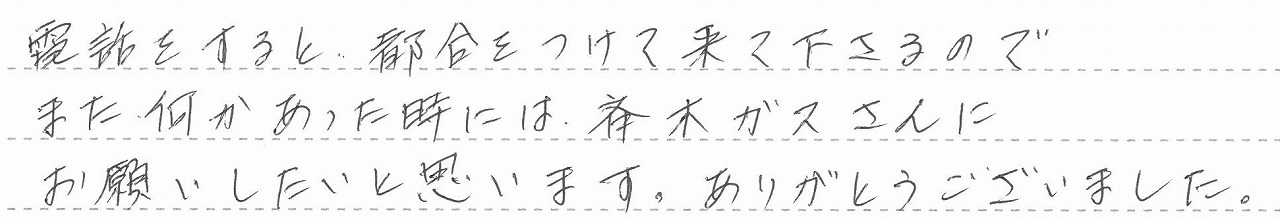 電話をすると、都合をつけて来て下さるので
また、何かあった時には、斉木ガスさんに
お願いしたいと思います。ありがとうございました。